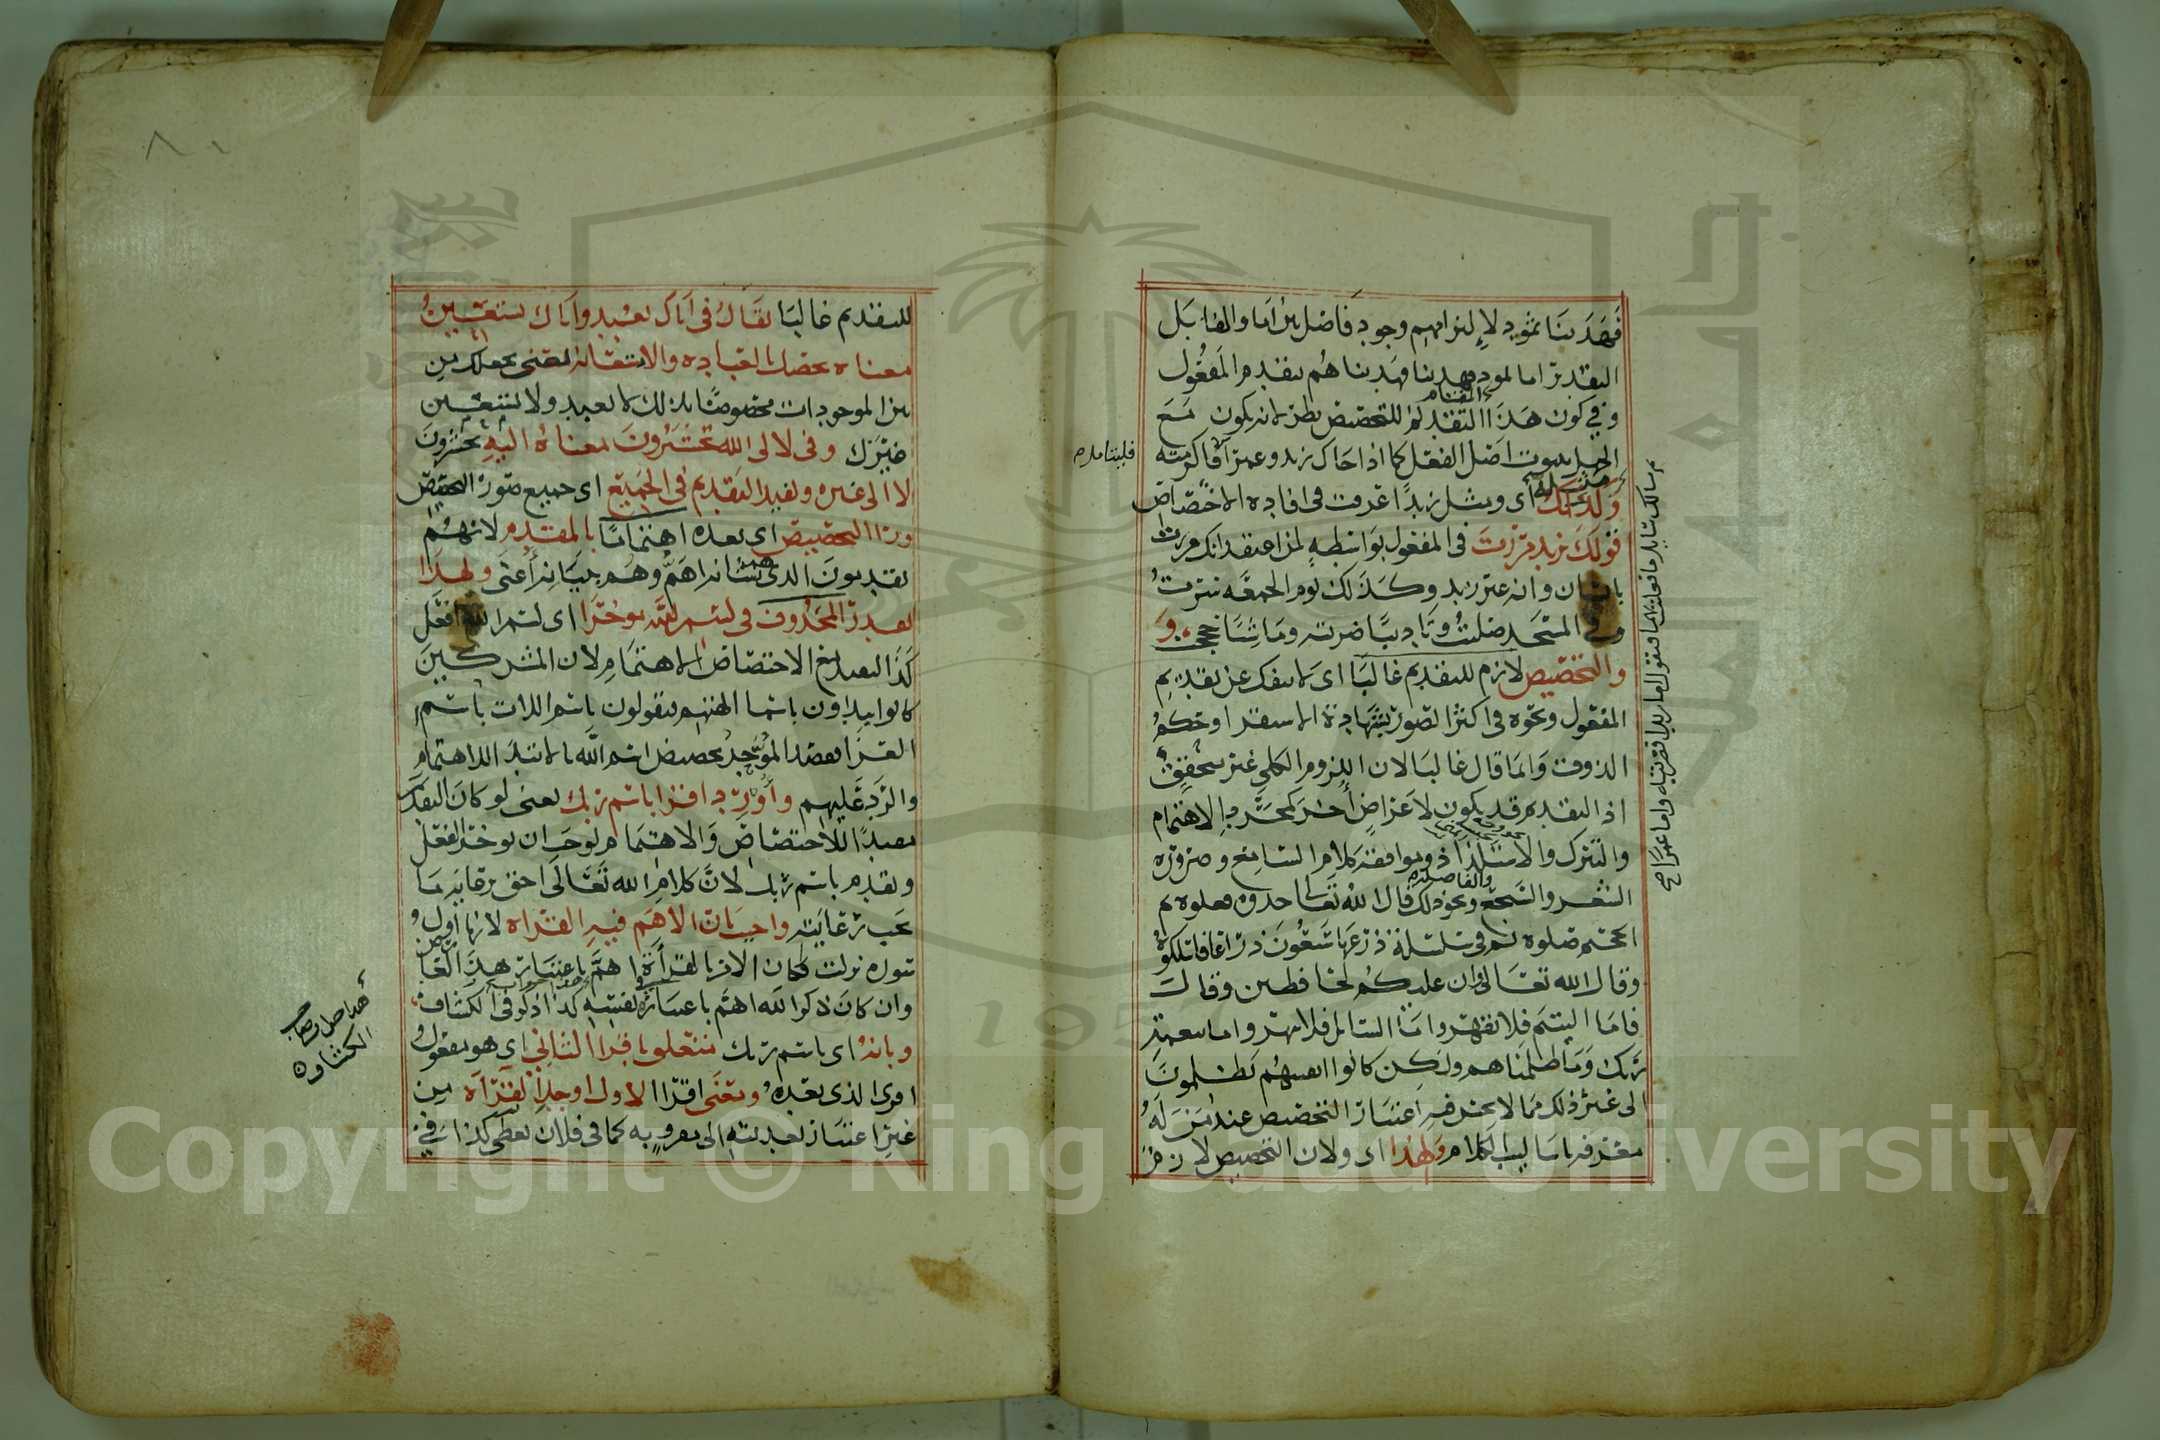 فهدينا ثمود لالتزامهم وجود فاصل بين اما والفا بل
التقدير اما ثمود فهدينا فهديناهم بتقديم المفعول
وفي كون هذا التقديم للتخصيص نظر لانه يكون مع
المقام
الجهل بثبوت اصل الفعل كما اذا جاك زيد وعمرو ثم
فليتامل
وكذلك اى ومثل زيدا عرفت فى افادة الاختصاص
قولك بزيد مررت فى المفعول بواسطة لمن اعتقد انك مررت
بانسان وانه غير زيد وكذلك يوم الجمعة سرت
وفي المسجد صليت وتاديبا ضربته وماشيا حججت
والتخصيص لازم للتقديم غالبا اى لا ينفك عن تقديم
المفعول ونحوه فى اكثر الصور بشهادة الاستقرا وحكم
الذوق وانما قال غالبا لان اللزوم الكلى غير متحقق
اذ التقديم قد يكون لاغراض اخر كمجرد الاهتمام
والتبرك والاستلذاذ وموافقة كلام السامع وضرورة
الشعر والسجع ونحو ذلك قال الله تعالى خذوه فغلوه ثم
والفاصلة
الجحيم صلوه ثم فى سلسلة ذرعها سبعون ذراعا فاسلكوه
وقال الله تعالى وان عليكم لحافظين وقال
فاما اليتيم فلا تقهر واما السائل فلا تنهر واما بنعمة
ربك وما ظلمناهم ولكن كانوا انفسهم يظلمون
الى غير ذلك مما لا يحسن فيه اعتبار التخصيص عند من له
معرفة باساليب الكلام ولهذا اى ولان التخصيص لازم
٨٠
للتقديم غالبا يقال فى اياك نعبد واياك نستعين
معناه نخصك بالعبادة والاستعانة بمعنى نجعلك من
بين الموجودات مخصوصا بذلك لا نعبد ولا نستعين
غيرك وفى لالى الله تحشرون معناه اليه تحشرون
لا الى غيره ويفيد التقديم فى الجميع اى جميع صور التخصيص
ورا التخصيص اى بعده اهتماما بالمقدم لانهم
يقدمون الذى شانه اهم وهم ببيانه اعنى ولهذا
يقدر المحذوف فى بسم الله موخرا اى بسم الله افعل
كذا ليفيد مع الاختصاص الاهتمام لان المشركين
كانوا يبداون باسما الهتهم فيقولون باسم اللات باسم
العزا فقصد الموحد تخصيص اسم الله بالابتدا للاهتمام
والرد عليهم واورد اقرا باسم ربك يعنى لو كان التقديم
مفيدا للاختصاص والاهتمام لوجب ان يوخر الفعل
ويقدم باسم ربك لان كلام الله تعالى احق برعاية ما
يجب رعايته واجيب بان الاهم فيه القراة لانها اول
سورة نزلت فكان الامر بالقراة اهم باعتبار هذا العارض
وان كان ذكر الله اهم باعتبار نفسه كذا ذكر فى الكشاف
وبانه اى باسم ربك متعلق باقرا الثانى اى هو مفعول
اقرا الذى بعده ومعنى اقرا الاول اوجد القراة من
غير اعتبار تعديته الى مقروء به كما فى فلان يعطى كذا فى
الكشاف
Copyright © King Saud University
1957